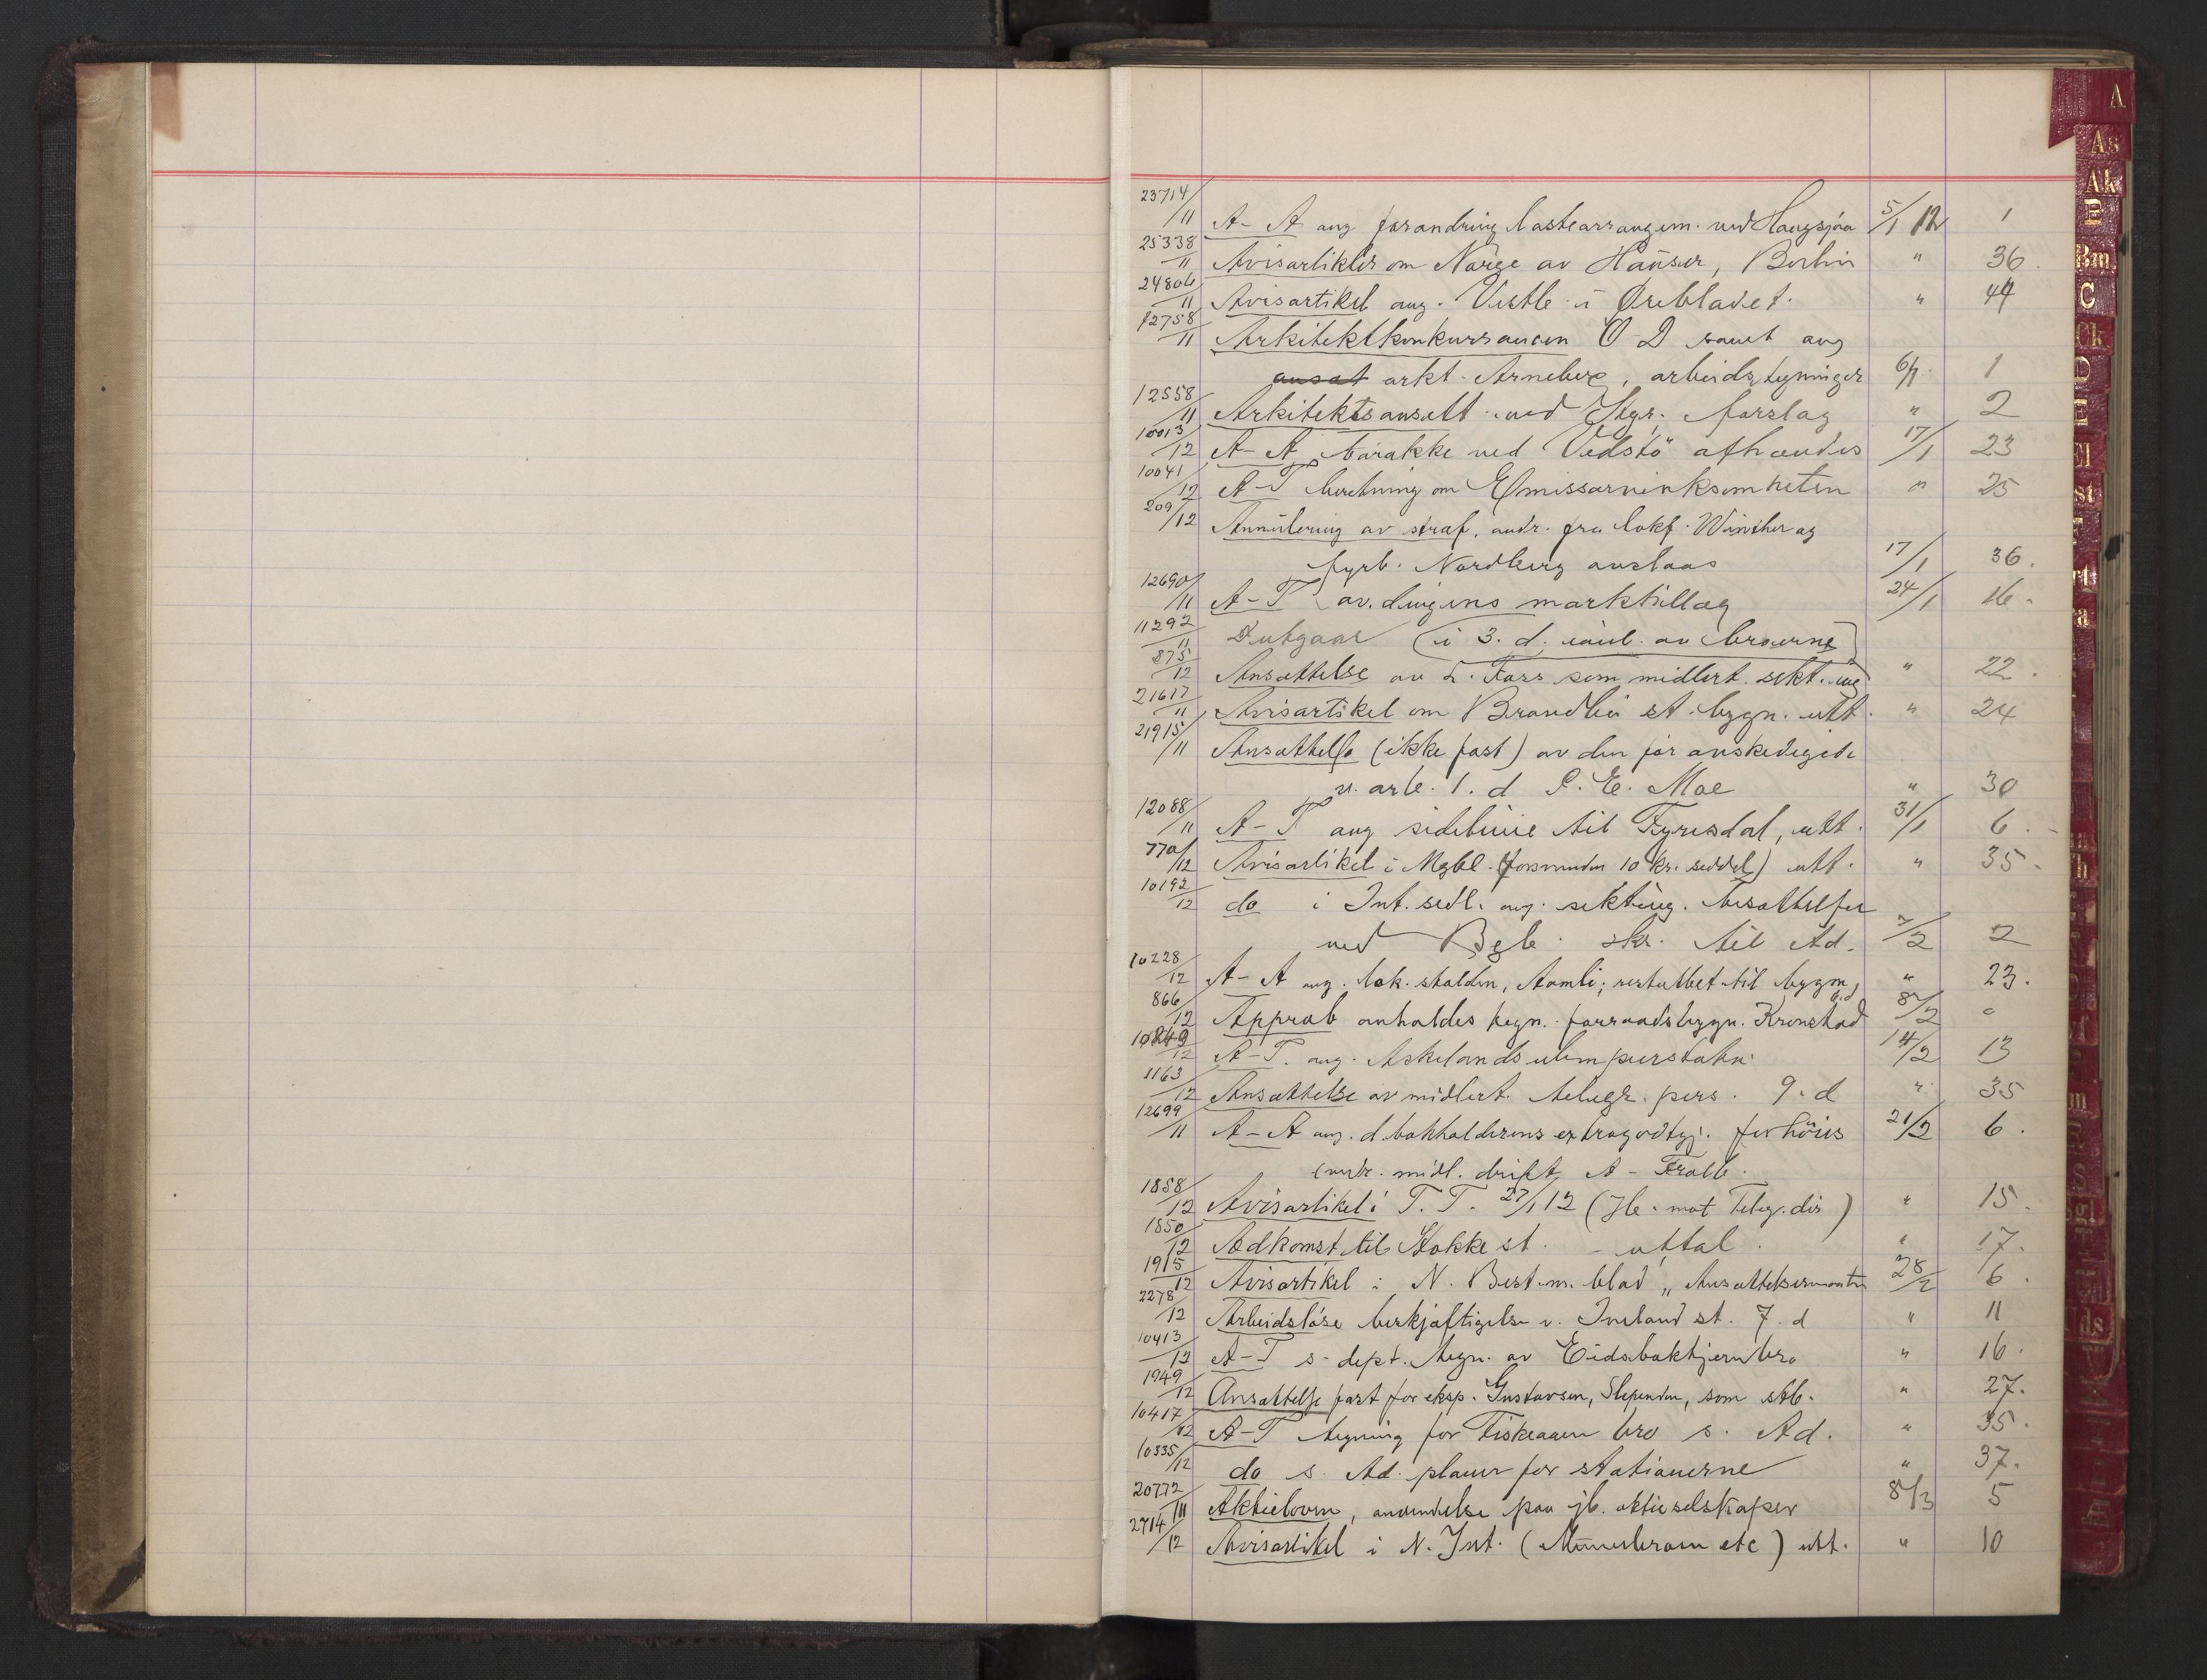 23714/11 A-A ang forandring lastearrangem. ved Haugsjaa 5/1 12 1
25338/11 Avisartikler om Norge av Häuser, Berlin " 36.
24806/11 Avisartikel ang. Vestle i Ørebladet. " 44
12758/11 Arkitektkonkurransen Ö-D samt ang
ansat arkt. Arneberg, arbeidstegninger 6/1 1
12558/11 Arkitektsansatt ved Stgr. forslag " 2
10013/12 A-A barakke ved Vedstö afhændes 17/1 23
10041/12 A-T beretning om Emissærvirksomheten " 25
209/12 Annulering av straf. andr. fra lokf. Winther og
fyrb. Nordberg anslaas 17/1 36.
12690/11 A-T av.dingens marktillæg 24/1 16.
11292/11 Dutgaar (i 3. d. av broerne)
875/12 Ansættelse av L. Foss som midlert. sekt. ing " 22.
21617/11 Avisartikel om Brandbu st. bygn. utt. " 24
21915/11 Ansættelse (ikke fast) av den før avskedigede
v. arb. 1. d P. E. Moe " 30
12088/11 A-T ang sidelinie til Fyresdal, utt. 31/1 6.
770/12 Avisartikel i Mgbl. (forsvunden 10 kr. seddel) utt. " 35.
10192/12 do i Int. sedl. ang. sekt.ing. besættelser
ved Bgb. skr. til Ad. 7/2 2
10228/12 A-A ang. lok. stalden, Aamli; restbeløbet til bygn. " 23.
866/12 Approb anholdes tegn. forraadsbygn. Kronstad 8/2
10849/12 A-T. ang. Askelands ulempeerstatn. 14/2 13
1163/12 Ansættelse av midlert. telegr. pers. 9. d " 35
12699/11 A-A ang. d. bokholderens extragodtgj. forhöies 21/2 6.
midl. drift A-Fralb.
1858/12 Avisartikel i T. T. 27/1 12 (Jb. mot Telegr. dir) " 15.
1850/12 Adkomst til Stokke st. - uttal. " 17.
1915/12 Avisartikel i N. Best.m. blad "Ansættelsesmaaten 28/2 6.
2278/12 Arbeidsløse beskjæftigelse v. Iveland st. 7. d " 11
10413/12 A-T s- dept. tegn. av Eidsbaktjern bro " 16.
1949/12 Ansættelse fast for eksp. Gustavsen, Slependen, som stb. " 27.
10417/12 A-T tegning for Fiskeaaen bro s. Ad. " 35.
10335/12 do s. Ad. planer for stationerne " 37.
20772/11 Aktieloven, anvendelse paa jb. aktieselskaper 8/3 5
2714/12 Avisartikel i N. Int. (Minnesbroen etc) utt. " 10
A
As
Ak
B
Bm
C
Ck
D
E
El